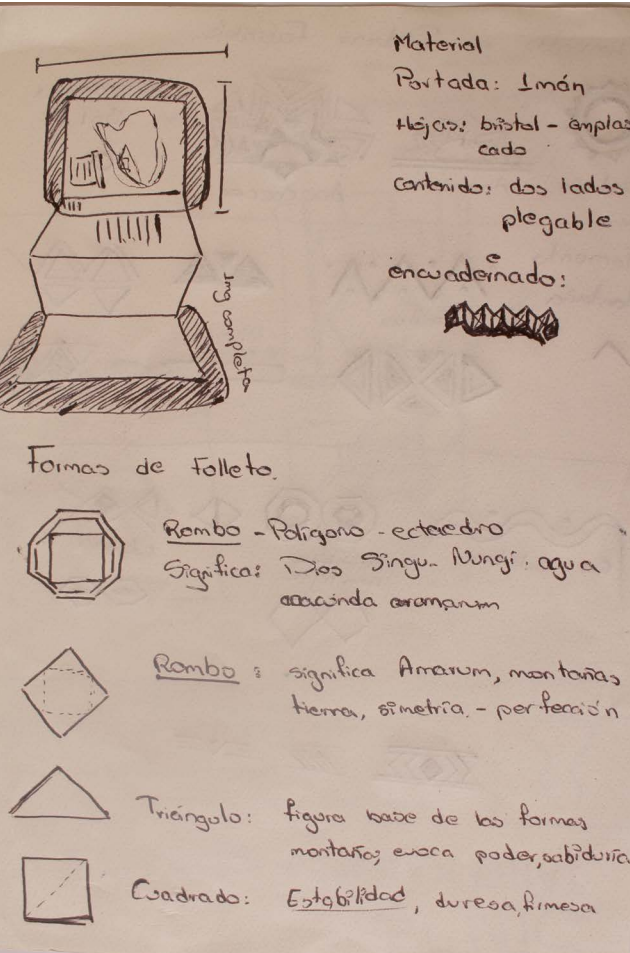 Material
Portada: Imán
Hojas: bristol - emplas
cado
Contenido: dos lados
plegable
e
encuadernado:
Img completa
Formas de Folleto.
Rombo - Polígono - ectaedro
Significa: Dios Singu - Nungi. agua
aramarum
Rombo: significa Amarum, montañas
tierra, simetría. - perfección
Triángulo: figura base de las formas
montaña; evoca poder, sabiduría
Cuadrado: Estabilidad, duresa, firmesa